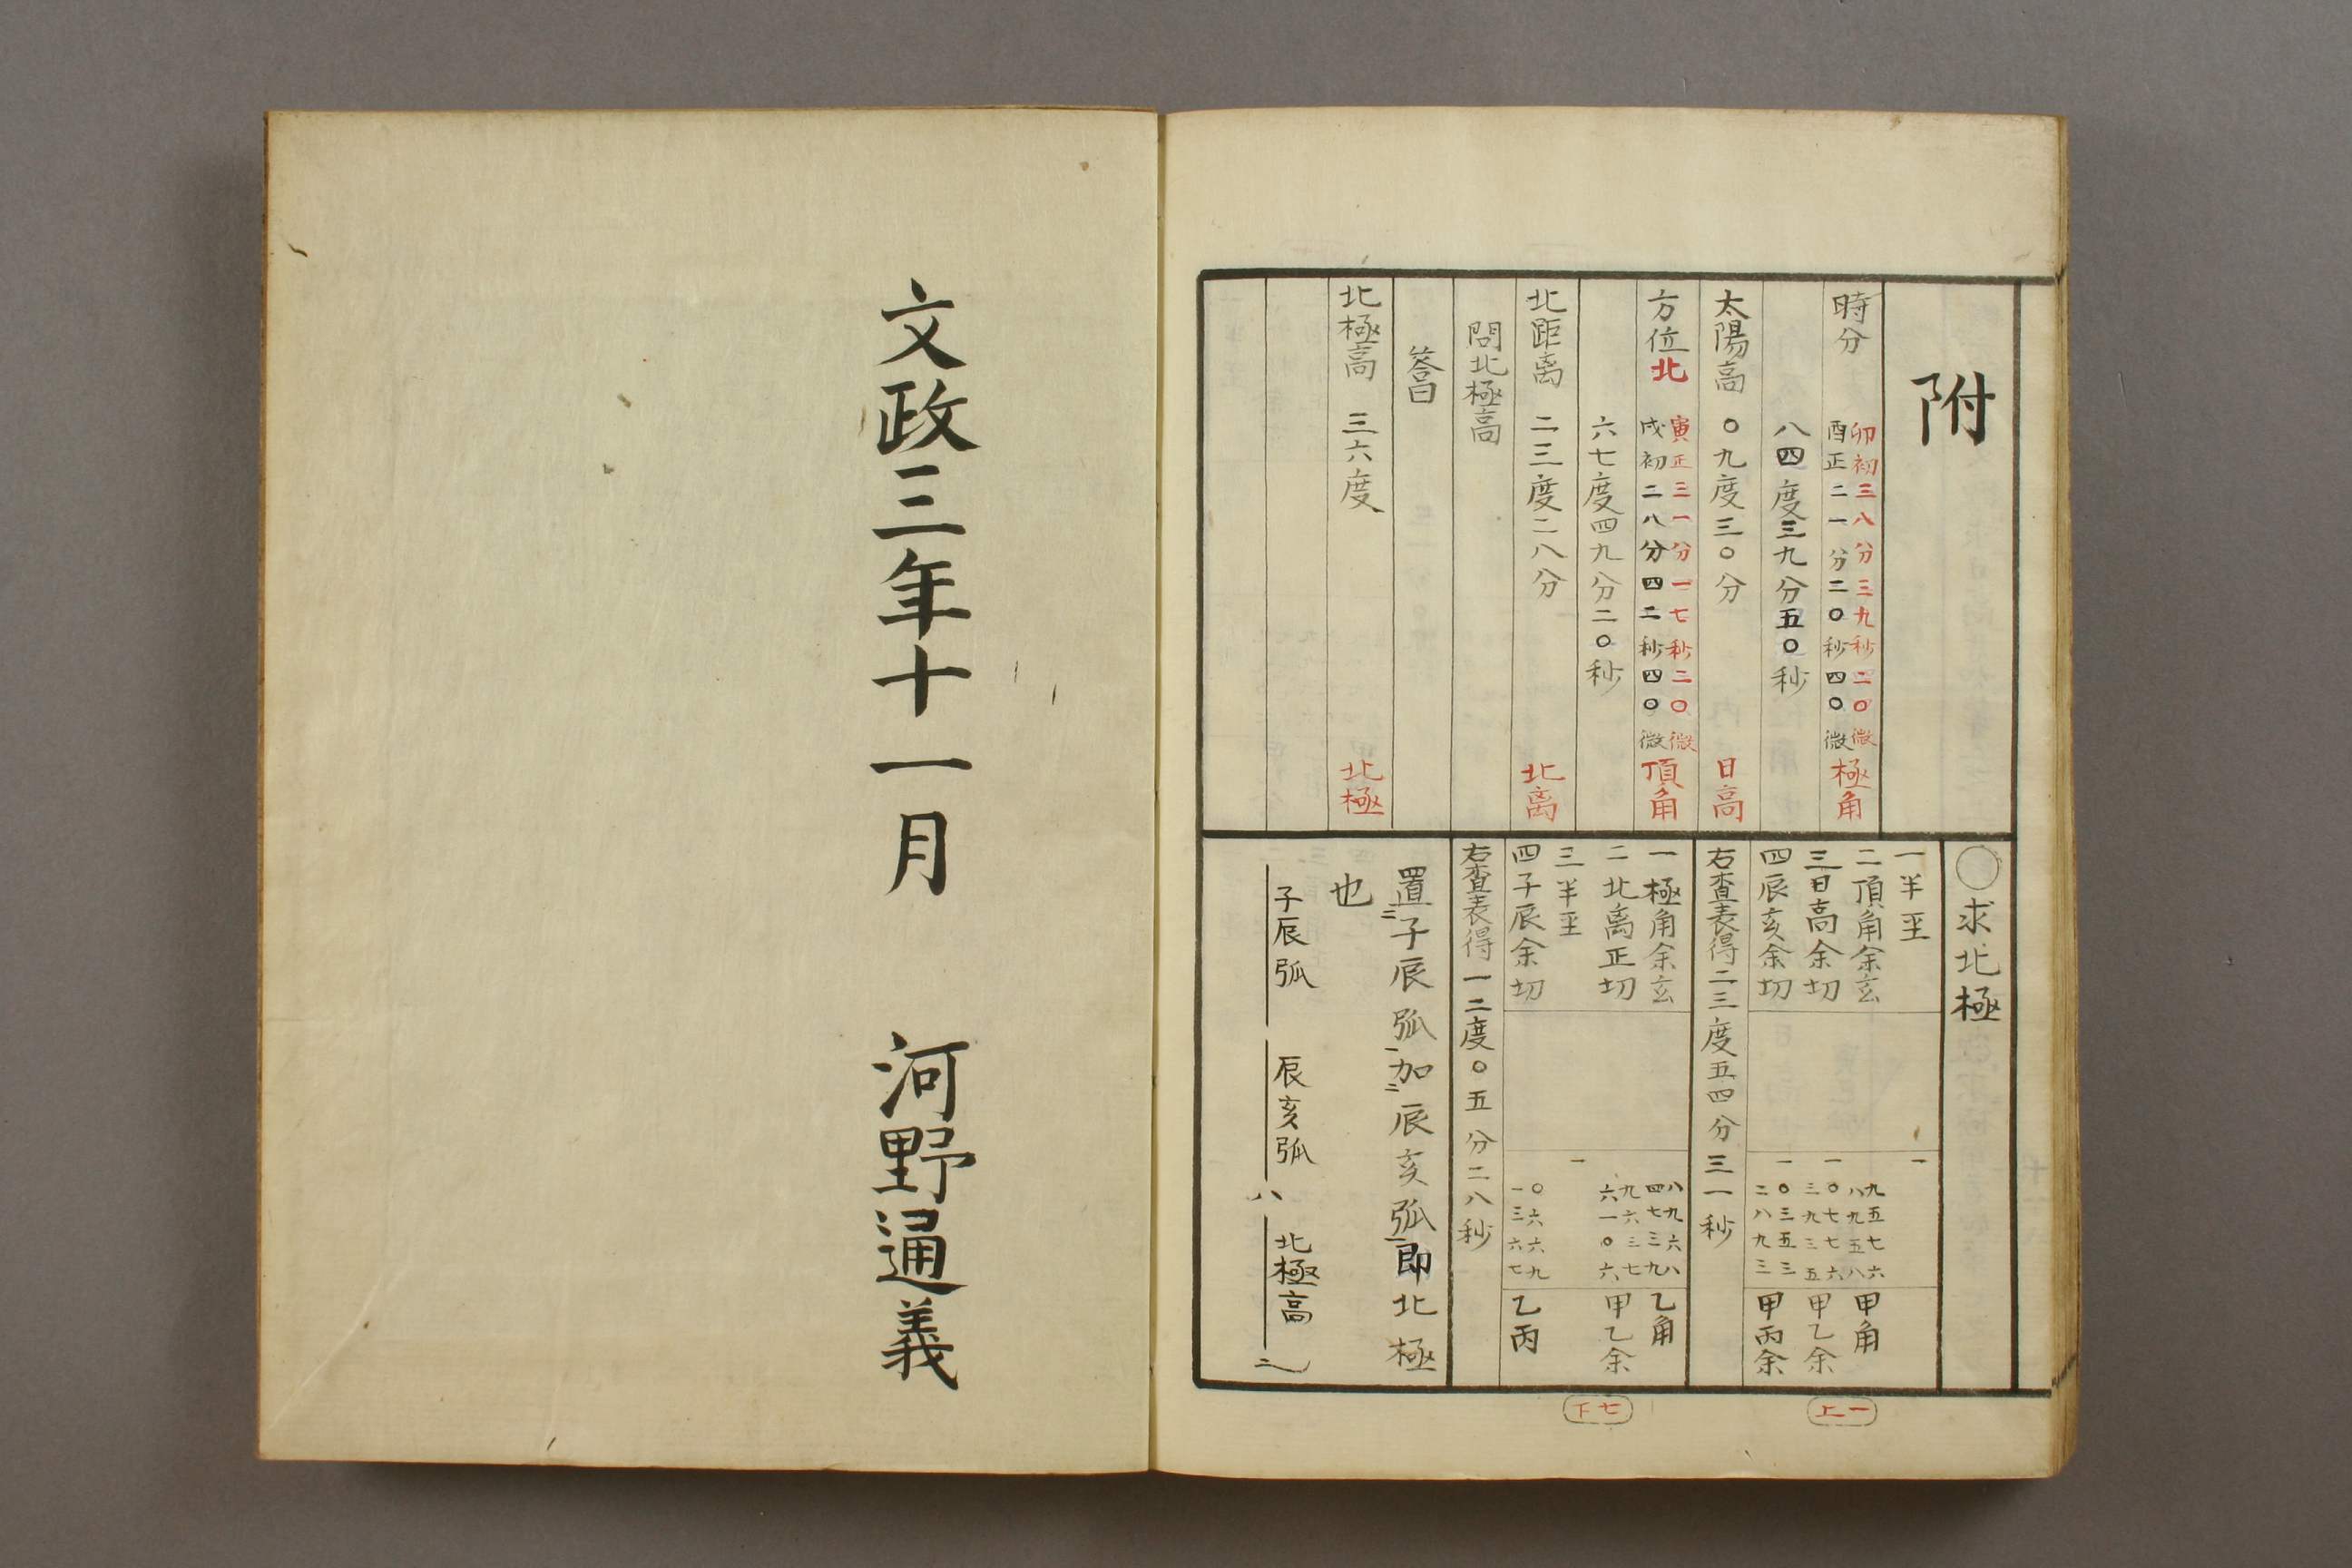 附
時分 卯初三八分三九秒二〇微 極角
酉正二一分二〇秒四〇微
八四度三九分五〇秒
太陽高 〇九度三〇分 日高
方位北 寅正三一分一七秒二〇微 頂角
戌初二八分四二秒四〇微
六七度四九分二〇秒
北距离 二三度二八分 北离
問北極高
答曰
北極高 三六度 北極
〇求北極
一半至 一
二頂角余玄 九五七六八九五八 甲角
三日高余切 一〇七七六三九三五 甲乙余
四辰亥余切 一〇三五三二八九三 甲丙余
右查表得二三度五四分三一秒
一極角余玄 八九六八四七三九 乙角
二北离正切 九六三七六一〇六 甲乙余
三半至 一
四子辰余切 〇六六九一三六七 乙丙
右查表得一二度〇五分二八秒
置ニ子辰弧一加ニ辰亥弧一即北極
也
子辰弧 辰亥弧ハ 北極高ニ
一上
七下
文政三年十一月 河野通義